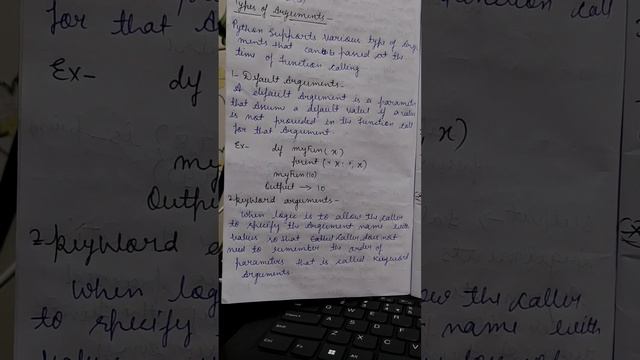 Types of Arguments -
Python supports various type of argu
ments that can be passed at the
time of function calling
1- Default Arguments -
A default Argument is a paramete
that Assum a default value if a value
is not provided in the function call
for that Argument.
Ex- def myfun(x)
print("x:", x)
myfun(10)
Output → 10
2. keyword arguments -
When logic is to allow the caller
to specify the Argument name with
values so that caller does not
need to remember the order of
parameters that is called keyword
Arguments